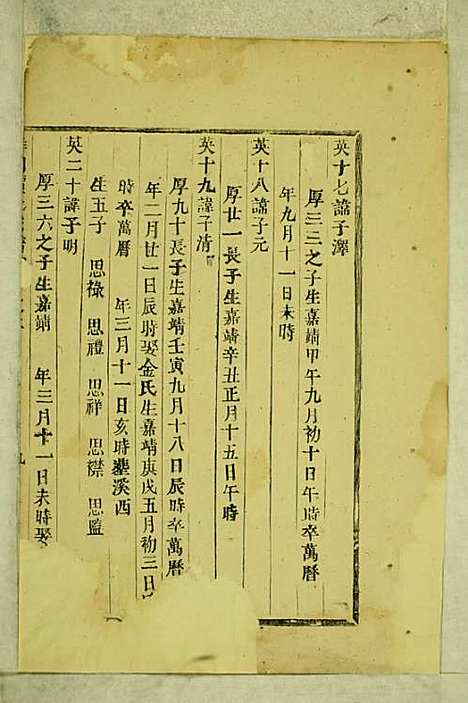 英十七諱子澤
厚三三之子生嘉靖甲午九月初十日午時卒萬曆
年九月十一日未時
英十八諱子元
厚廿一長子生嘉靖辛丑正月十五日午時
英十九諱子清
厚九十長子生嘉靖壬寅九月十八日辰時卒萬曆
年二月廿一日辰時娶金氏生嘉靖庚戌五月初三日
時卒萬曆 年三月十一日亥時塟溪西
生五子 思祿 思禮 思祥 思襟 思
英二十諱子明
厚三六之子生嘉靖 年三月十一日未時娶